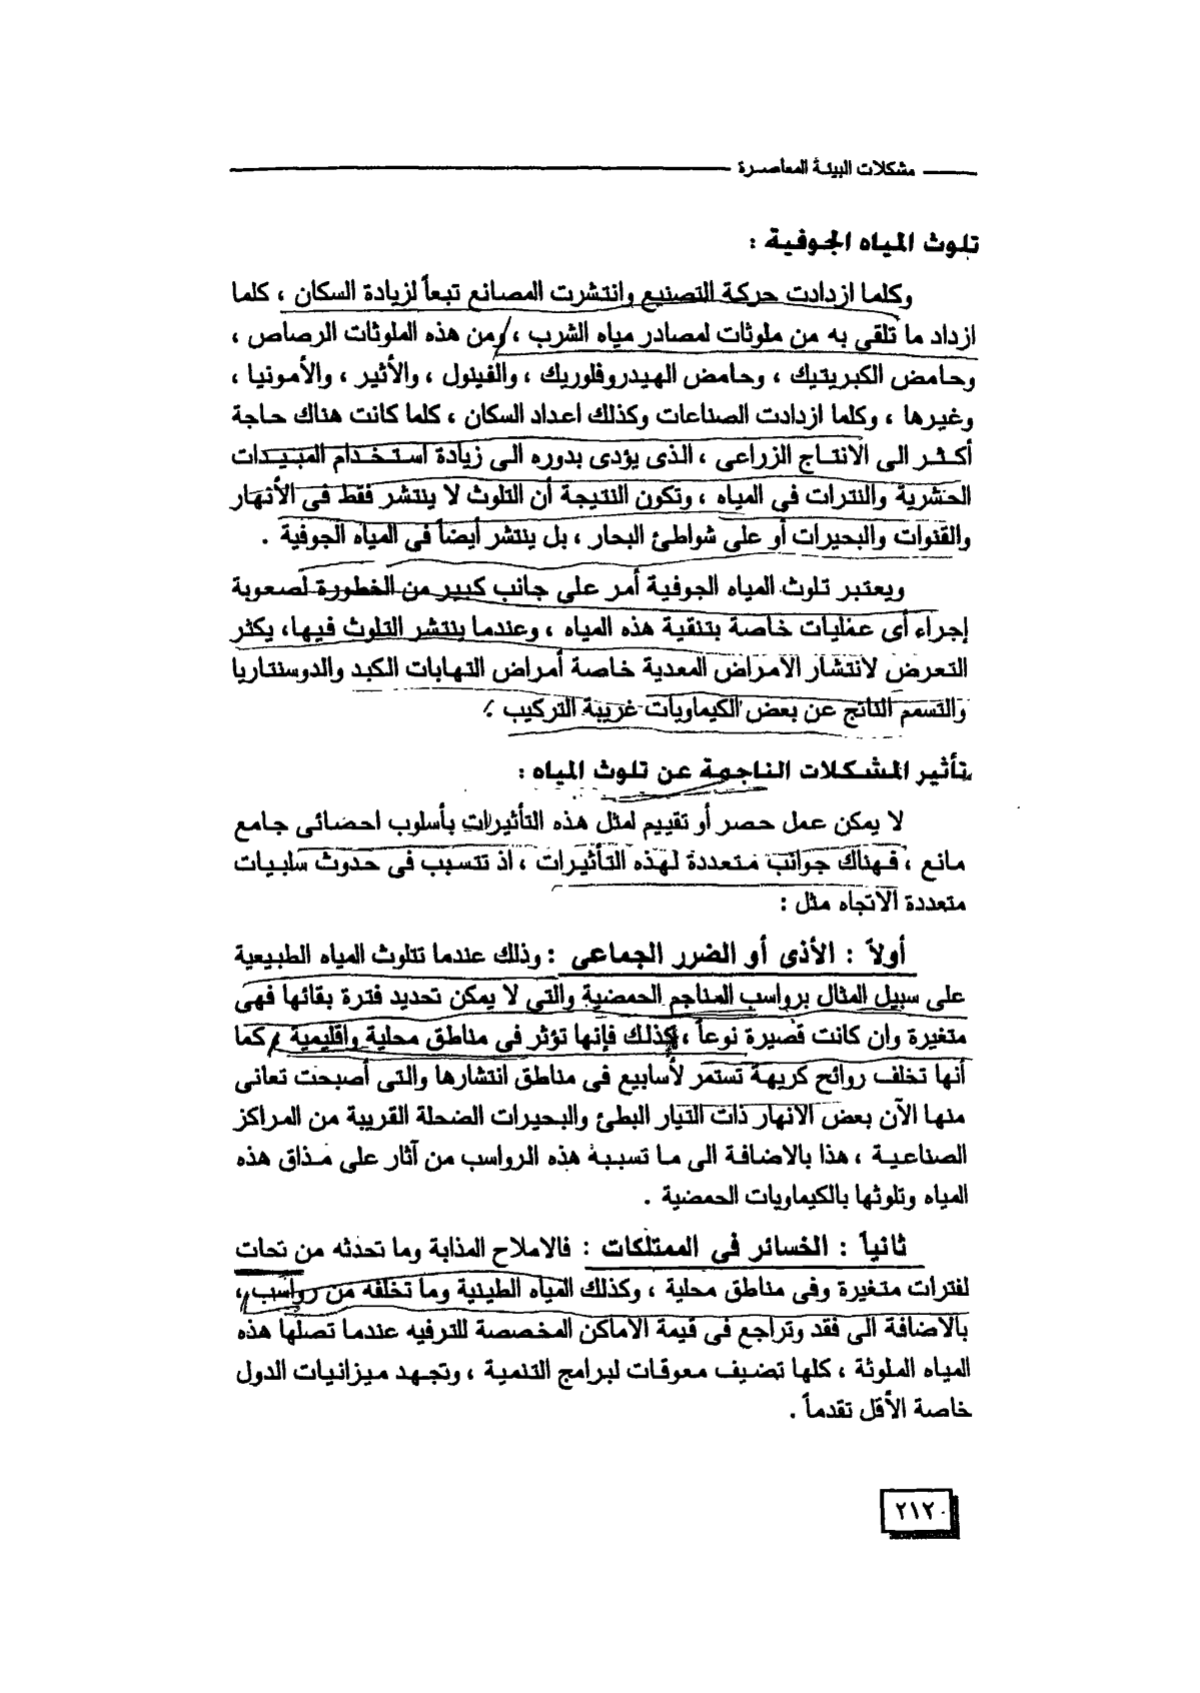 مشكلات البيئة المعاصرة
تلوث المياه الجوفية :
وكلما ازدادت حركة التصنيع وانتشرت المصانع تبعاً لزيادة السكان ، كلما
ازداد ما تلقى به من ملوثات لمصادر مياه الشرب ، ومن هذه الملوثات الرصاص ،
وحامض الكبريتيك ، وحامض الهيدروفلوريك ، والفينول ، والأثير ، والأمونيا ،
وغيرها ، وكلما ازدادت الصناعات وكذلك اعداد السكان ، كلما كانت هناك حاجة
أكثر الى الانتاج الزراعى ، الذى يؤدى بدوره الى زيادة استخدام المبيدات
الحشرية والنترات فى المياه ، وتكون النتيجة أن التلوث لا ينتشر فقط فى الأنهار
والقنوات والبحيرات أو على شواطئ البحار ، بل ينتشر أيضاً فى المياه الجوفية .
ويعتبر تلوث المياه الجوفية أمر على جانب كبير من الخطورة لصعوبة
إجراء أى عمليات خاصة بتنقية هذه المياه ، وعندما ينتشر التلوث فيها، يكثر
التعرض لانتشار الامراض المعدية خاصة أمراض التهابات الكبد والدوسنتاريا
والتسمم الناتج عن بعض الكيماويات غريبة التركيب .
تأثير المشكلات الناجمة عن تلوث المياه :
لا يمكن عمل حصر أو تقييم لمثل هذه التأثيرات بأسلوب احصائى جامع
مانع ، فهناك جوانب متعددة لهذه التأثيرات ، اذ تتسبب فى حدوث سلبيات
متعددة الاتجاه مثل :
أولاً : الأذى أو الضرر الجماعى : وذلك عندما تتلوث المياه الطبيعية
على سبيل المثال برواسب المناجم الحمضية والتى لا يمكن تحديد فترة بقائها فهى
متغيرة وان كانت قصيرة نوعاً ، كذلك فإنها تؤثر فى مناطق محلية واقليمية ، كما
أنها تخلف روائح كريهة تستمر لأسابيع فى مناطق انتشارها والتى أصبحت تعانى
منها الآن بعض الانهار ذات التيار البطئ والبحيرات الضحلة القريبة من المراكز
الصناعية ، هذا بالاضافة الى ما تسببه هذه الرواسب من آثار على مذاق هذه
المياه وتلوثها بالكيماويات الحمضية .
ثانياً : الخسائر فى الممتلكات : فالاملاح المذابة وما تحدثه من تحات
لفترات متغيرة وفى مناطق محلية ، وكذلك المياه الطينية وما تخلفه من رواسب ،
بالاضافة الى فقد وتراجع فى قيمة الاماكن المخصصة للترفيه عندما تصلها هذه
المياه الملوثة ، كلها تضيف معوقات لبرامج التنمية ، وتجهد ميزانيات الدول
خاصة الأقل تقدماً .
٢١٢